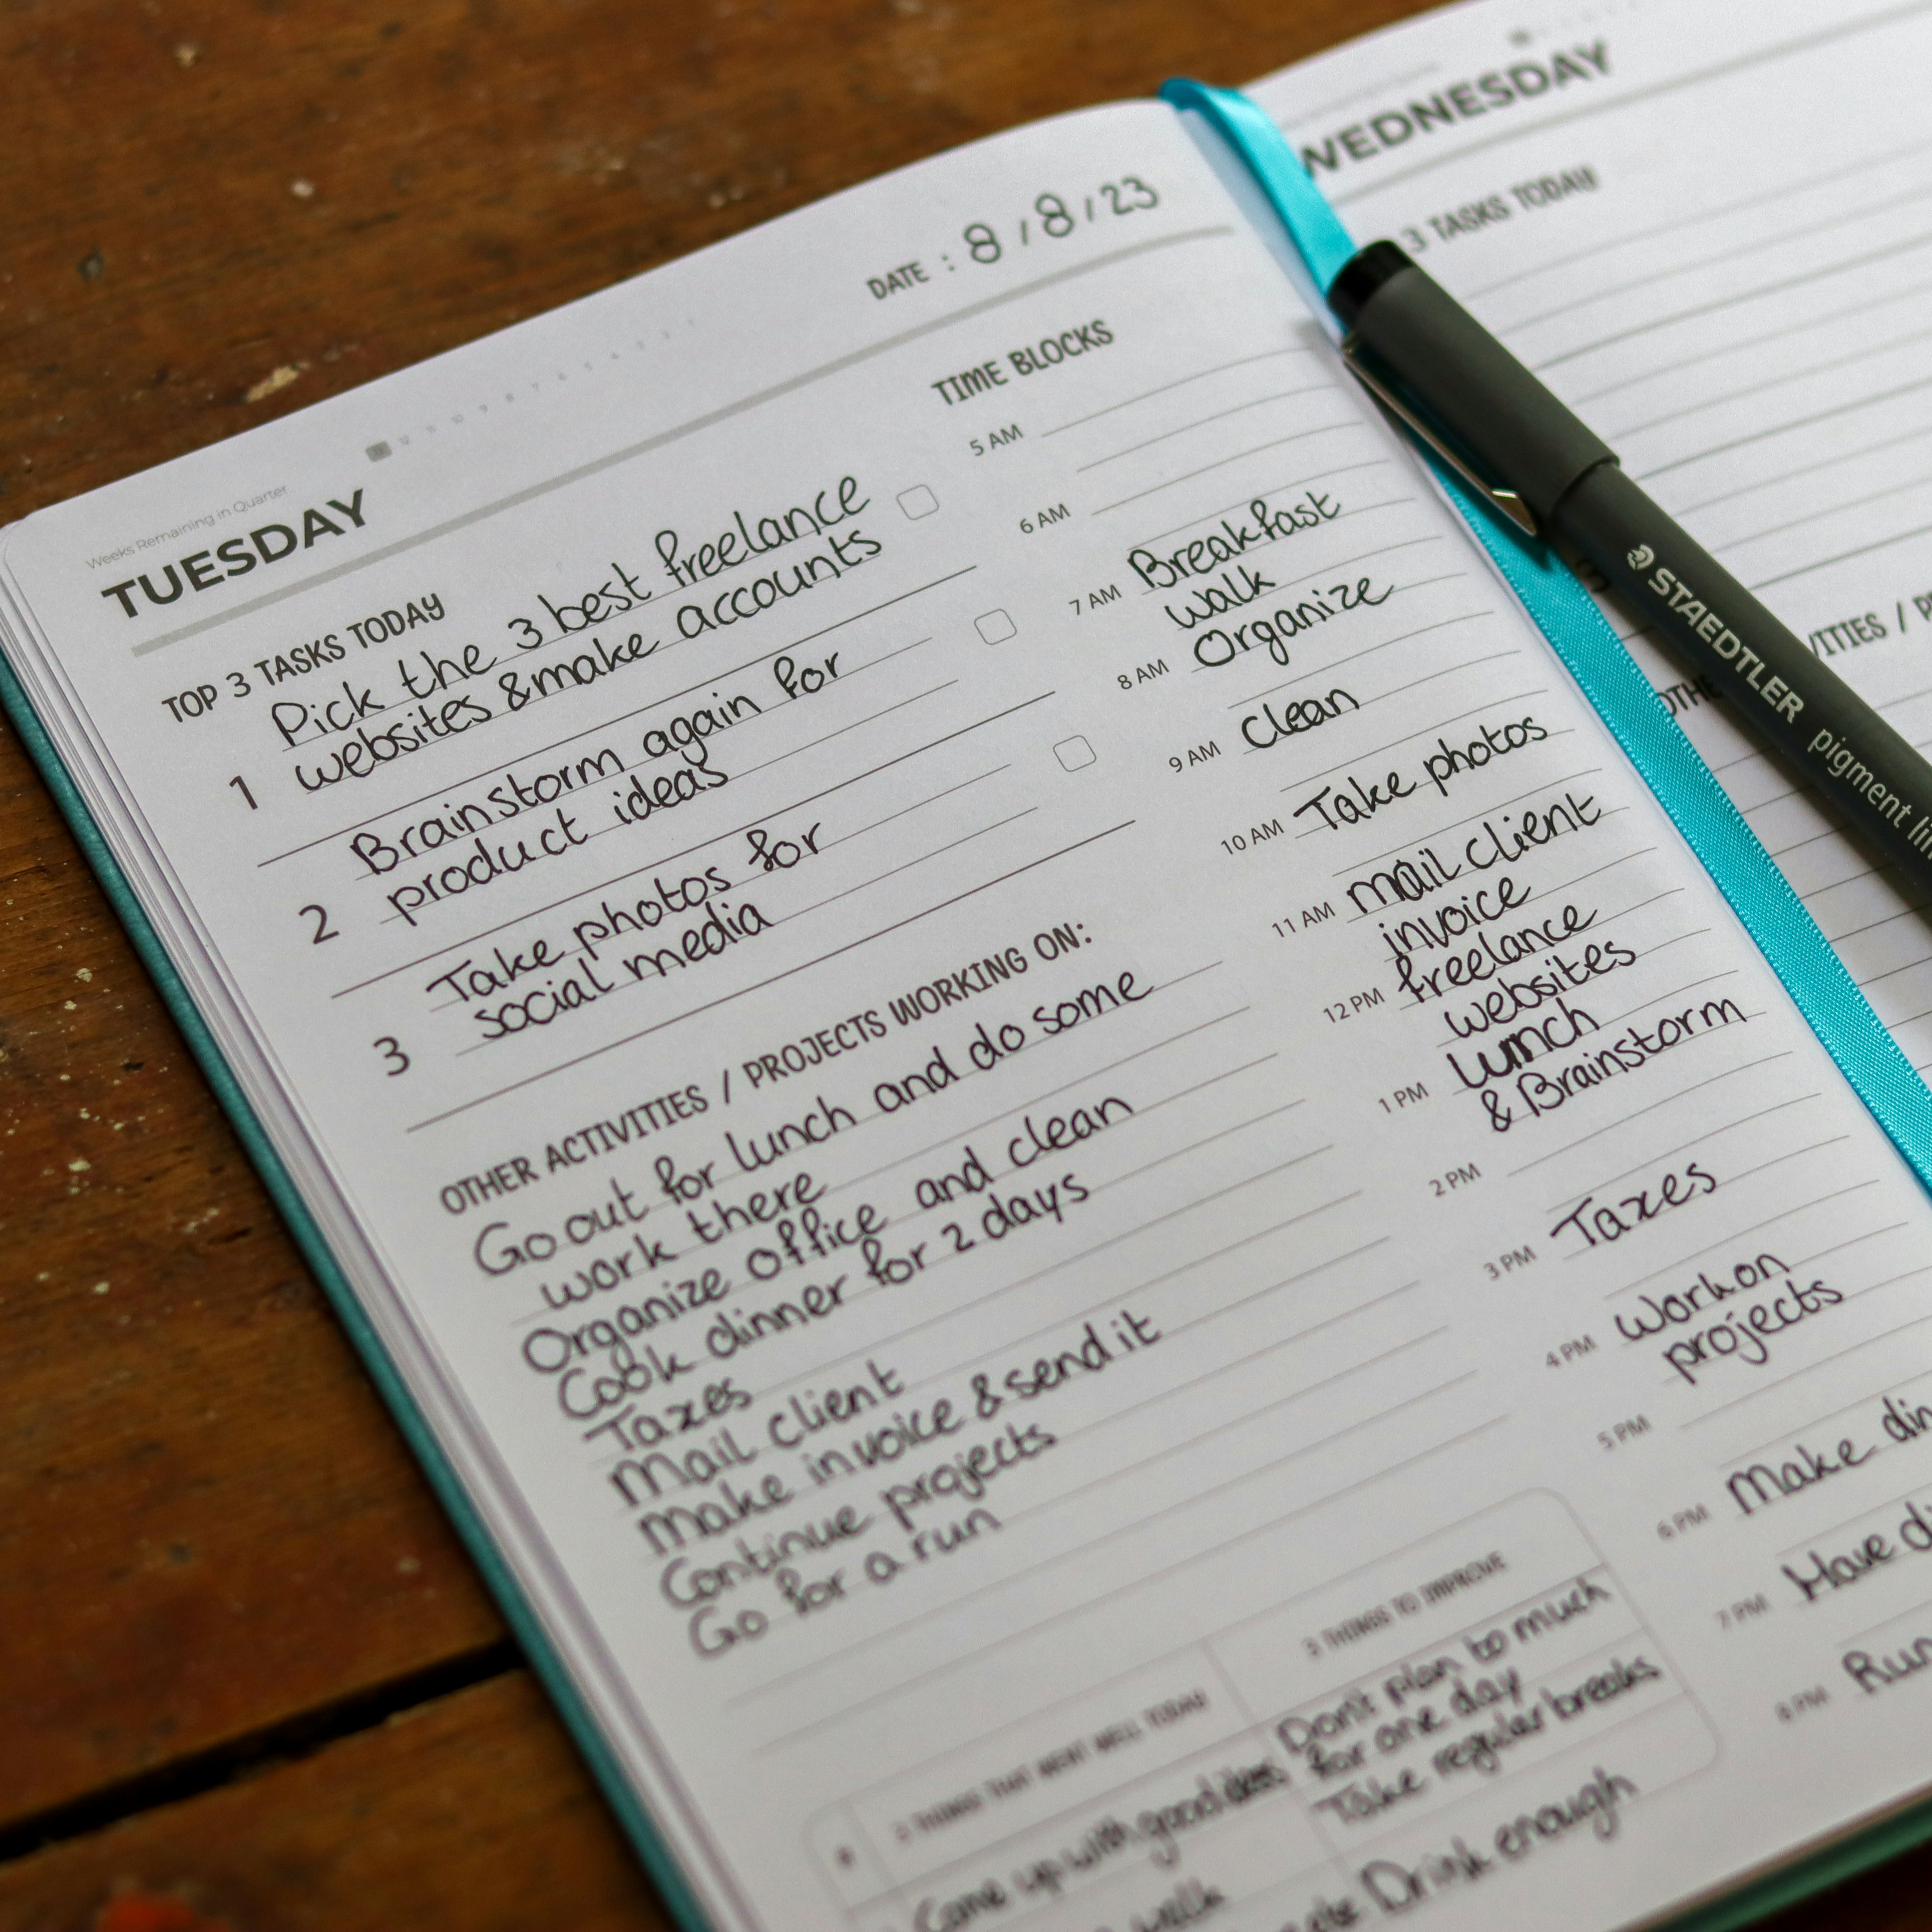 Weeks Remaining in Quarter
12 11 10 9 8 7 6 5 4 3 2 1
TUESDAY
DATE : 8/8/23
TOP 3 TASKS TODAY
1
Pick the 3 best freelance
websites & make accounts
2
Brainstorm again for
product ideas
3
Take photos for
social media
OTHER ACTIVITIES / PROJECTS WORKING ON:
Go out for lunch and do some
work there
Organize office and clean
Cook dinner for 2 days
Taxes
Mail client
Make invoice & send it
Continue projects
Go for a run
3 THINGS THAT WENT WELL TODAY
Come up with good ideas
walk
3 THINGS TO IMPROVE
Don't plan to much
for one day
Take regular breaks
Drink enough
TIME BLOCKS
5 AM
6 AM
7 AM Breakfast
walk
8 AM Organize
9 AM Clean
10 AM Take photos
11 AM mail client
invoice
12 PM freelance
websites
1 PM lunch
& Brainstorm
2 PM
3 PM Taxes
4 PM Work on
projects
5 PM
6 PM Make
7 PM Have
8 PM Run
WEDNESDAY
3 TASKS TODAY
STAEDTLER pigment